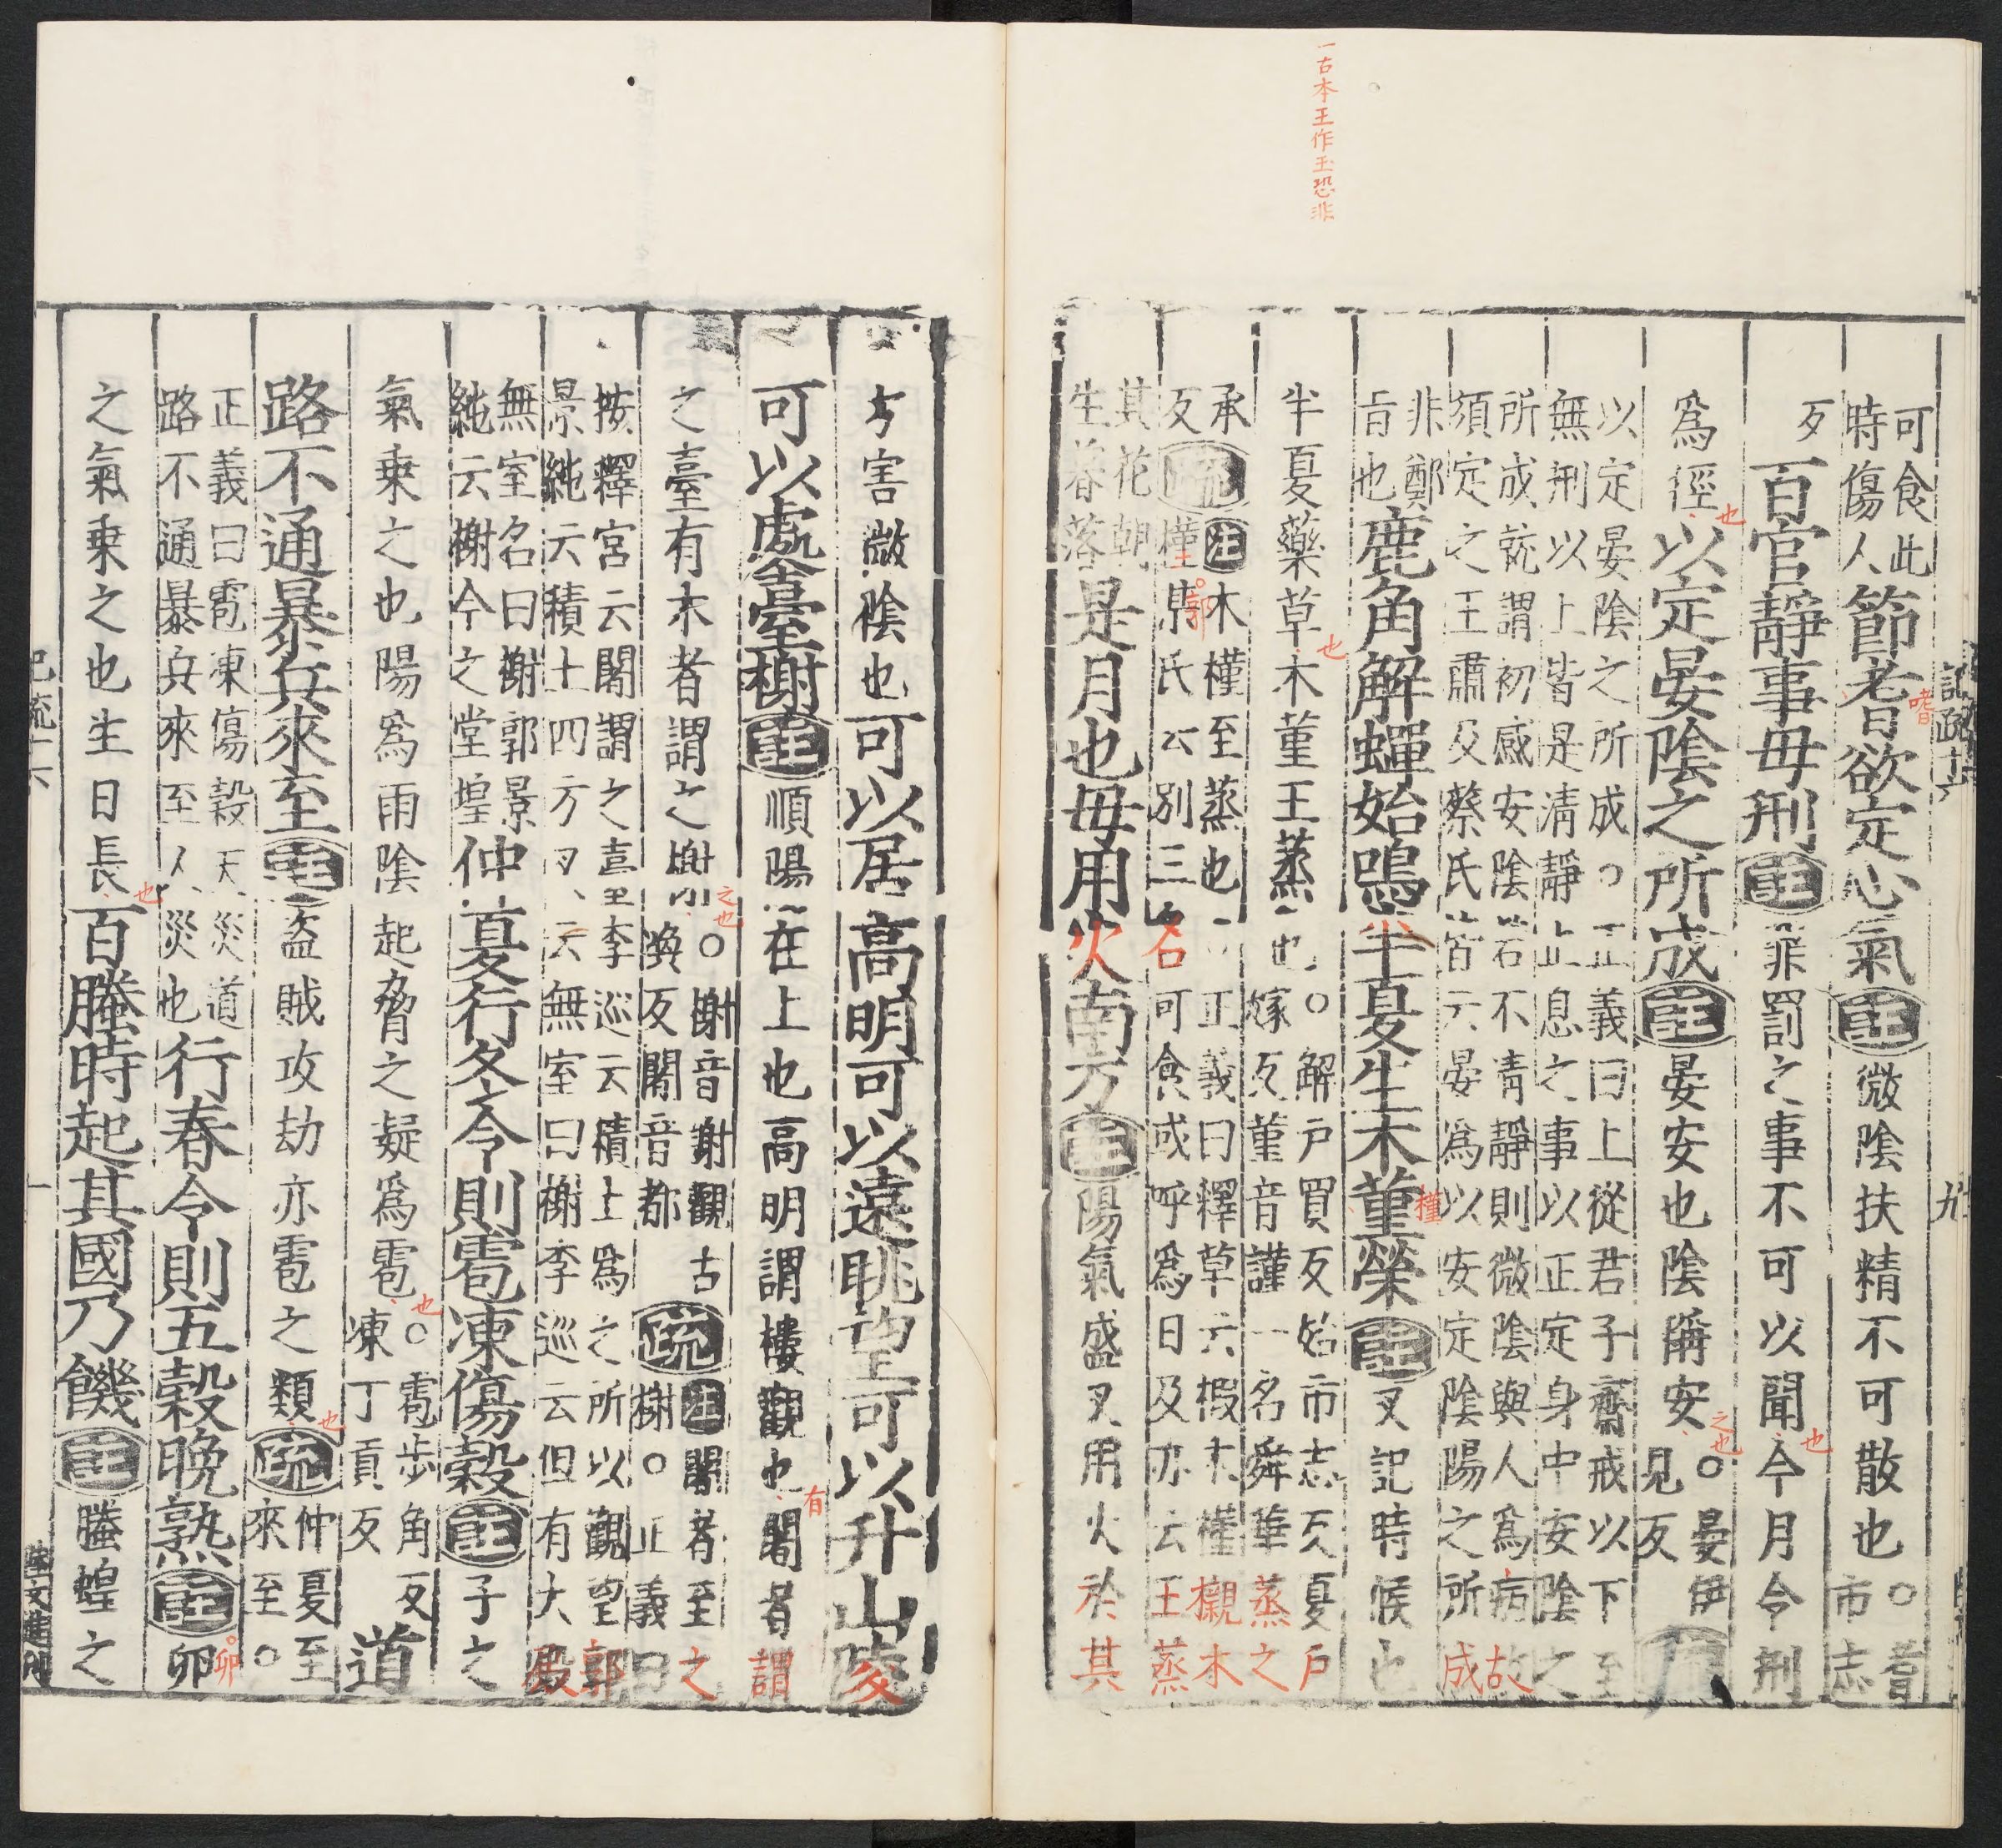 一古本王作玉恐非
記疏十六
九
可食此
時傷人
節耆欲定心氣
嗜
注
微陰扶精不可散也
○耆
市志
反
百官靜事毋刑
注
罪罰之事不可以聞今月令刑
也
爲徑
也
以定晏陰之所成
注
晏安也陰稱安
之也
○晏伊
見反
疏
以定晏陰之所成○正義曰上從君子齊戒以下至
無刑以上皆是清靜止息之事以正定身中安陰之
所成就謂初感安陰若不清靜則微陰與人爲病故
須定之王肅及蔡氏皆云晏爲以安定陰陽之所成
非鄭
旨也
鹿角解蟬始鳴半夏生木堇榮
槿
注
又記時候也
半夏藥草
也
木堇王蒸也
○解戶買反始市志反夏戶
嫁反堇音謹一名舜華蒸之
承
反
疏
注
木槿至蒸也○正義曰釋草云椵木槿櫬木
槿郭氏云別三名可食或呼爲日及亦云王蒸
其花朝
生暮落
是月也毋用火南方
注
陽氣盛又用火於其
方害微陰也可以居高明可以遠眺望可以升山陵
可以處臺榭
注
順陽在上也高明謂樓觀也
有
闍者謂
之臺有木者謂之榭
之也
○榭音謝觀古
喚反闍音都
疏
注
闍者至之
榭○正義曰
按釋宮云闍謂之臺李巡云積土爲之所以觀望郭
景純云積土四方又云無室曰榭李巡云但有大殿
無室名曰榭郭景
純云榭今之堂堭
仲夏行冬令則雹凍傷穀
注
子之
氣乗之也陽爲雨陰起脅之凝爲雹
也
○雹步角反
凍丁貢反
道
路不通暴兵來至
注
盜賊攻劫亦雹之類
也
疏
仲夏至
來至○
正義曰雹凍傷穀天災道
路不通暴兵來至人災也
行春令則五穀晚熟
注
卯
卯
之氣乗之也生日長
也
百螣時起其國乃饑
注
螣蝗之